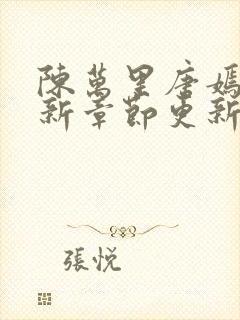 陳萬里唐嫣
新章節更新
張悅